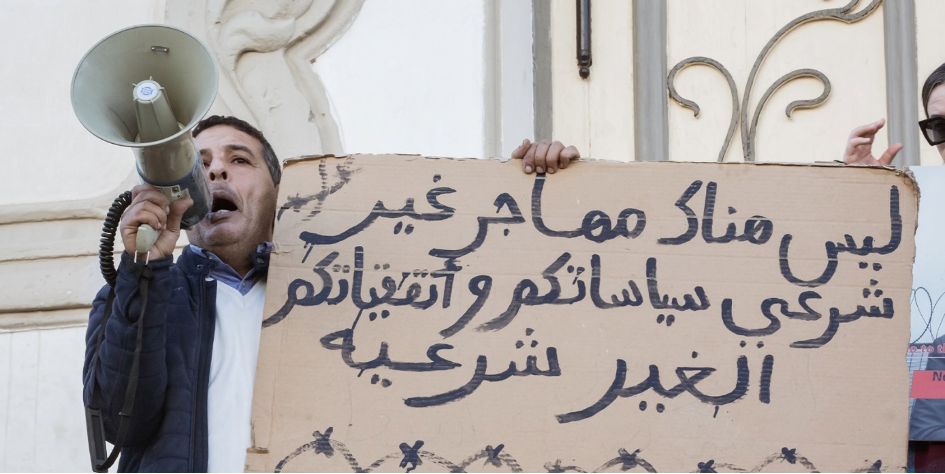 ليس هناك مهاجر غير
شرعي سياساتكم و أتفقياتكم
الغير شرعيه